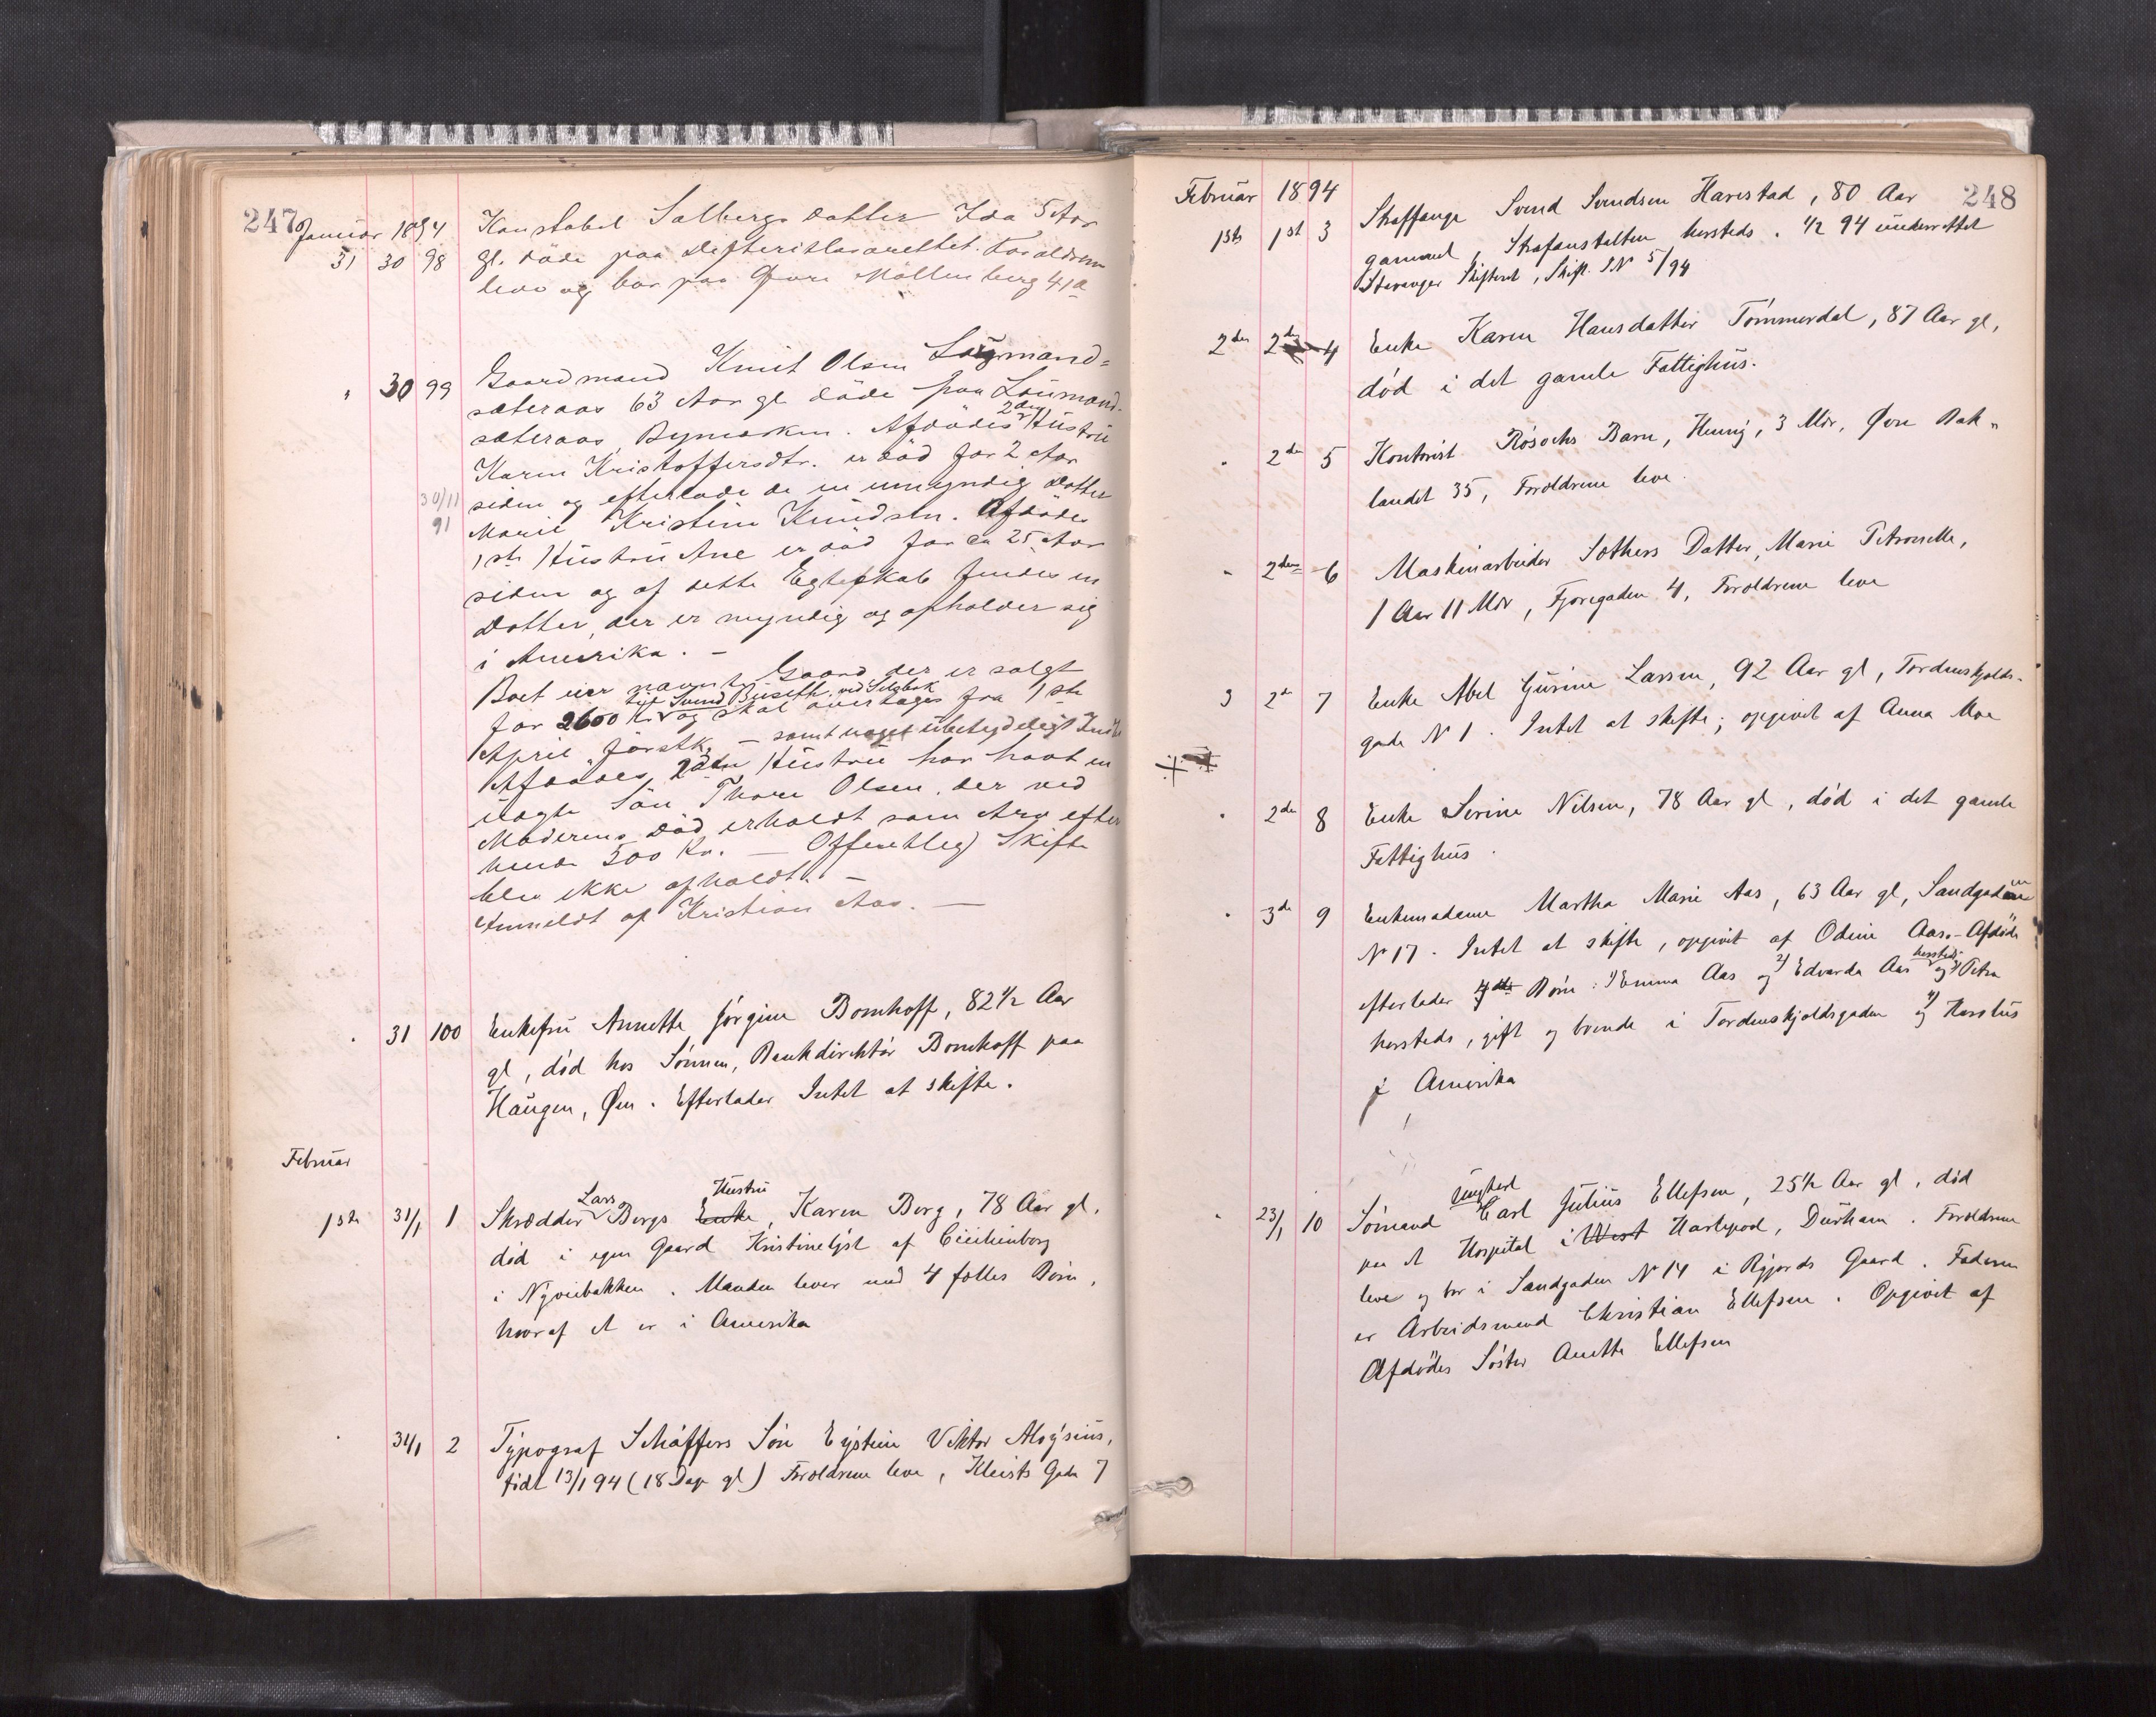 247
Januar 1894
31 30 98 Konstabel Salbergs Datter Ida 5 Aar
gl. døde paa Difteritlasarettet. Forældrene
leve og bor paa Øvre Møllenberg 41a
" 30 99 Gaardmand Knut Olsen Laugmand=
sæteraas 63 Aar gl. døde paa Loumand-
sæteraas Bymarken. Afdødes 2den Hustru
Karen Kristoffersdtr. er død for 2 Aar
30/11 91 siden og efterlade de en umyndig Datter
Marie Kristine Knudsen. Afdødes
1ste Hustru Ane er død for ca 25 Aar
siden og af dette Egteskab findes en
Datter, der er myndig og opholder sig
i Amerika. –
Boet eier nævnte Gaard der er solgt
til Svend Buseth ved Selsbak
for 2600 Kr og skal overtages fra 1ste
April førstk. – samt noget ubetydeligt Indbo
Afdødes 2den Hustru har havt en
uægte Søn Thore Olsen, der ved
Moderens Død erholdt som Arv efter
hende 500 Kr. – Offentleg Skifte
blev ikke afholdt. –
Anmeldt af Kristian Aas. –
. 31 100 Enkefru Annette Jørgine Bomhoff, 82 1/2 Aar
gl, død hos Sønnen, Bankdirektør Bomhoff paa
Haugen, Øen. Efterlader Intet at skifte.
Februar
1ste 31/1 1 Skrædder Lars Bergs Enke Hustru, Karen Berg, 78 Aar gl.
død i egen Gaard Kristinelyst af Cicilienborg
i Nyveibakken. Manden lever med 4 fælles Børn,
hvoraf et er i Amerika
. 31/1 2 Typograf Schäffers Søn Eystein Viktor Aloysius,
født 13/1 94 (18 Dage gl) Forældrene leve, Kleists Gade 7
248
Februar 1894
1ste 1st 3 Straffange Svend Svendsen Harestad, 80 Aar
gammel, Strafanstalten hersteds. 1/2 94 underrettet
Stavanger Skifteret, Skift. JN 5/94
2den 2den 4 Enke Karen Hansdatter Tømmerdal, 87 Aar gl,
død i det gamle Fattighus.
. 2de 5 Kontorist Røsochs Barn, Henny, 3 Mdr, Øvre Bak-
landet 35, Forældrene leve.
" 2den 6 Maskinarbeider Sæthers Datter, Marie Petronelle,
1 Aar 11 Mdr, Fjæregaden 4, Forældrene leve
3 2de 7 Enke Abel Gurine Larsen, 92 Aar gl, Tordenskjolds-
gade N 1. Intet at skifte; opgivet af Anna Moe
. 2de 8 Enke Serine Nilsen, 78 Aar gl, død i det gamle
Fattighus.
. 3de 9 Enkemadame Martha Marie Aas, 63 Aar gl, Sandgaden
N 17. Intet at skifte, opgivet af Odine Aas. – Afdøde
efterlader 4 Børn: 1) Emma Aas og 2) Edvarda Aas hersteds og 3) Petra
hersteds, gift og boende i Tordenskjoldsgaden og 4)
i Amerika
. 23/1 10 Sømand Ungkarl Carl Julius Ellefsen, 25 1/2 Aar gl, død
paa et Hospital i West Hartepool, Durham. Forældrene
leve og bor i Sandgaden N 14 i Ryjords Gaard. Faderen
er Arbeidsmand Christian Ellefsen. Opgivet af
Afdødes Søster Anette Ellefsen